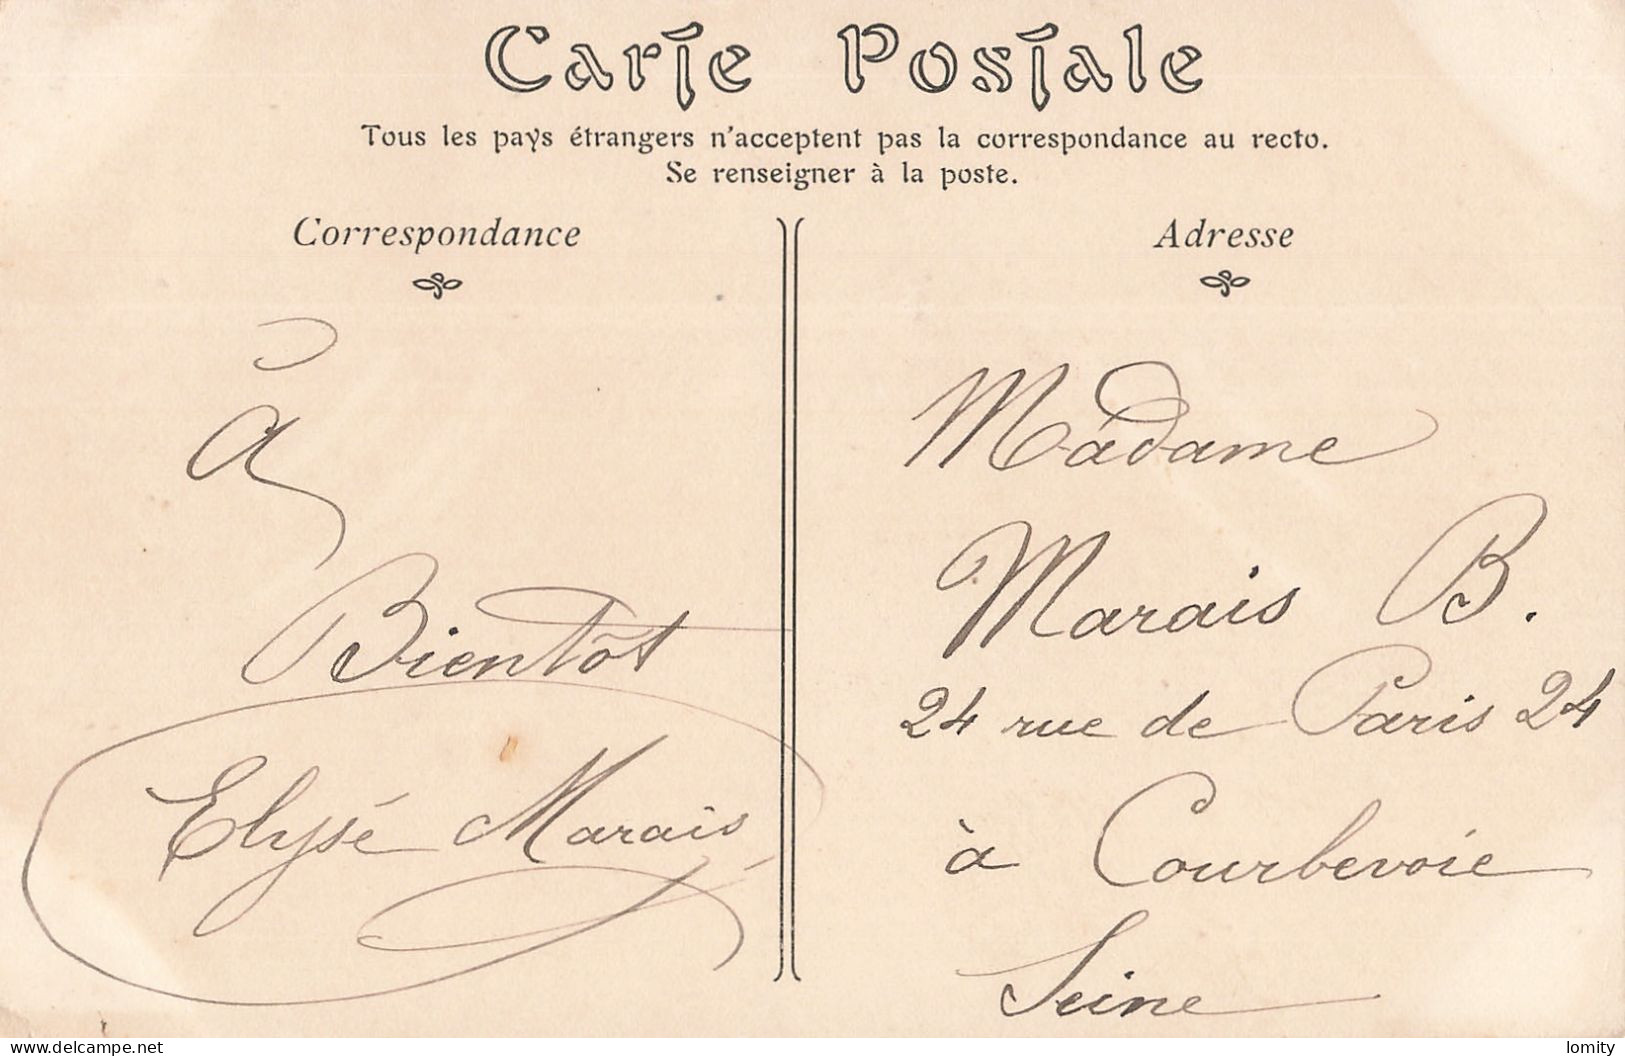 Carte Postale
Tous les pays étrangers n'acceptent pas la correspondance au recto.
Se renseigner à la poste.
Correspondance
à
Bientôt
Elysé Marais
Adresse
Madame
Marais B.
24 rue de Paris 24
à Courbevoie
Seine
www.delcampe.net
lomity